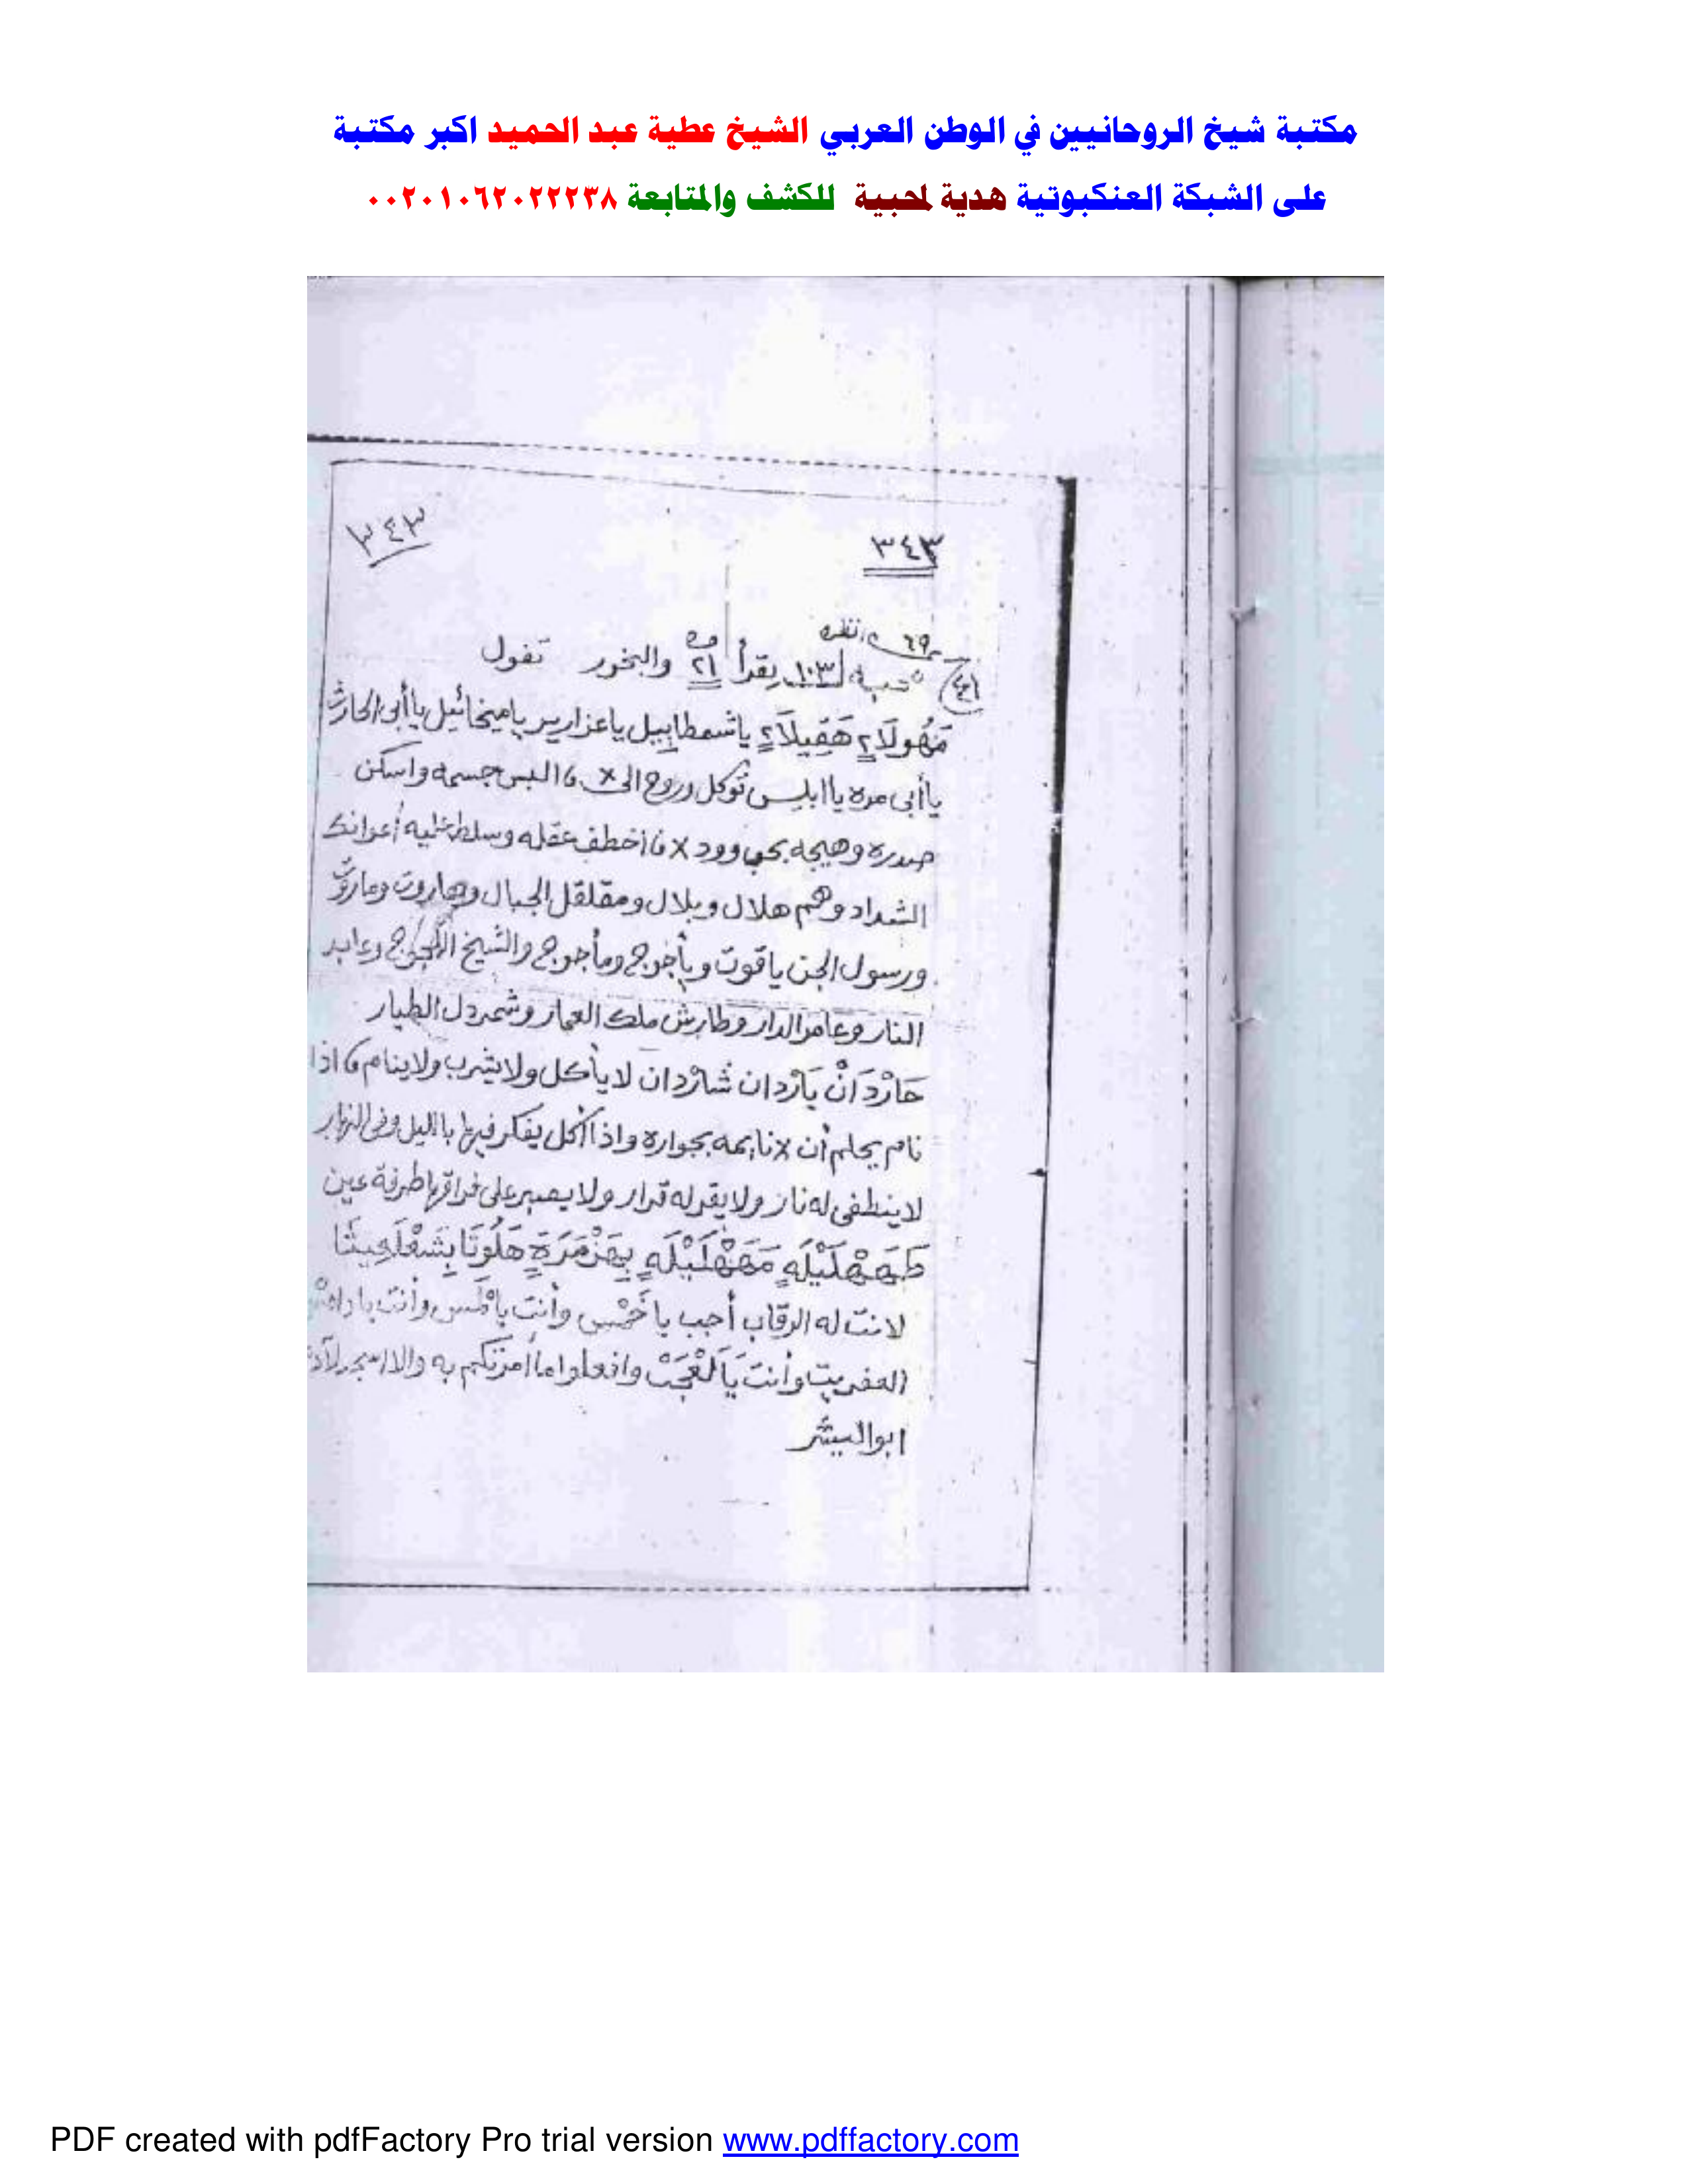 مكتبة شيخ الروحانيين في الوطن العربي الشيخ عطية عبد الحميد اكبر مكتبة
على الشبكة العنكبوتية هدية لمحبية للكشف والمتابعة ٠٠٢٠١٠٦٢٠٢٢٢٣٨
٣٤٣ ٣٤٣
٦٩ انظر
٤١ محبه ١٠٣ يقرأ ٢١ مره والبخور تقول
يا شمطابيل يا عزاريير يا ميخائيل يا أبى الحارث
يا أبى مره يا ابليس توكل وروح الى × البس جسمه واسكن
صدره وهيجه بحب وود × اخطف عقله وسلط عليه أعوانك
الشداد وهم هلال وبلال ومقلقل الجبال وهاروت وماروت
ورسول الجن ياقوت ويأجوج ومأجوج والشيخ وعابد
النار وعامر الدار وطارش ملك العمار وشمردل الطيار
حَازْدَانْ يَازْدان شازْدان لا يأكل ولا يشرب ولا ينام اذا
نام يحلم أن × نايمه بجواره واذا أكل يفكر فيها بالليل وفى النهار
لا ينطفى له نار ولا يقر له قرار ولا يصبر على فراقها طرفة عين
لانت له الرقاب أجب يا وأنت يا وأنت يا
العفريت وأنت وافعلوا ما أمرتكم به والا
ابو البشر
PDF created with pdfFactory Pro trial version www.pdffactory.com